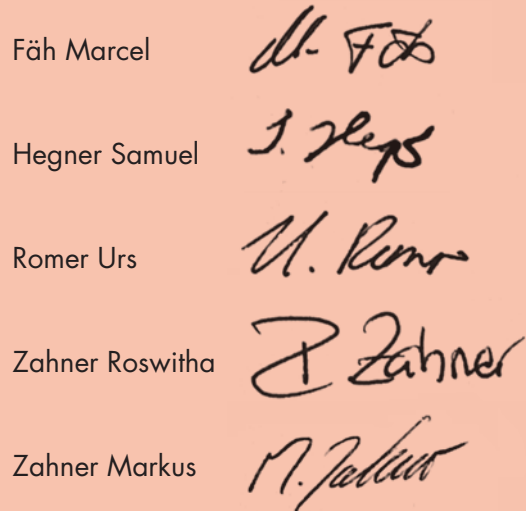 Fäh Marcel M. Fäh
Hegner Samuel S. Hegner
Romer Urs U. Romer
Zahner Roswitha R Zahner
Zahner Markus M. Zahner